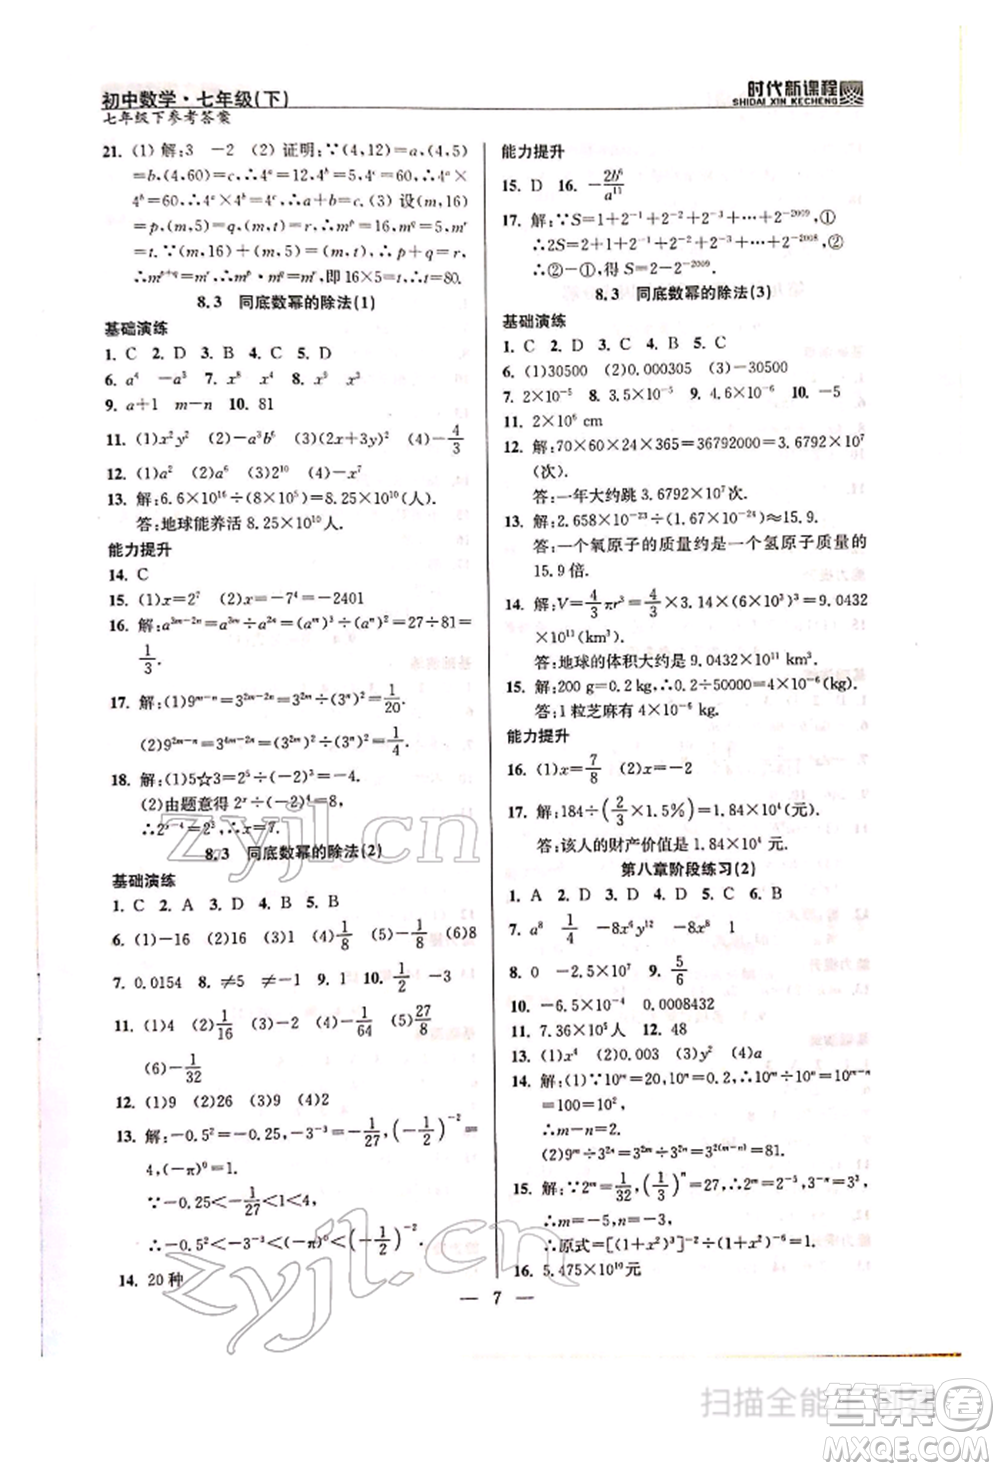 初中数学·七年级(下)
七年级下参考答案
时代新课程
SHIDAI XIN KECHENG
21. (1) 解:3 －2 (2) 证明:∵(4,12)=a,(4,5)
=b,(4,60)=c,∴4ᵃ=12,4ᵇ=5,4ᶜ=60,∴4ᵃ×
4ᵇ=60,∴4ᵃ×4ᵇ=4ᶜ,∴a+b=c. (3) 设(m,16)
=p,(m,5)=q,(m,t)=r,∴mᵖ=16,m^q=5,mʳ
=t.∵(m,16)+(m,5)=(m,t),∴p+q=r,
∴m^{p+q}=mʳ,∴mᵖ·m^q=mʳ,即16×5=t,∴t=80.
8.3 同底数幂的除法(1)
基础演练
1. C 2. D 3. B 4. C 5. D
6. a⁴ －a³ 7. x⁸ x⁴ 8. x⁴ x³
9. a+1 m－n 10. 81
11. (1)x²y² (2)－a³b⁶ (3)(2x+3y)² (4)－4/3
12. (1)a² (2)a⁶ (3)2¹⁰ (4)－x⁷
13. 解:6.6×10¹⁶÷(8×10⁵)=8.25×10¹⁰(人).
答:地球能养活 8.25×10¹⁰人.
能力提升
14. C
15. (1)x=2⁷ (2)x=－7⁴=－2401
16. 解:a^{3m－2n}=a^{3m}÷a^{2n}=(aᵐ)³÷(aⁿ)²=27÷81=
1/3.
17. 解:(1)9^{m－n}=3^{2m－2n}=3^{2m}÷(3ⁿ)²=1/20.
(2)9^{2m－n}=3^{4m－2n}=(3^{2m})²÷(3ⁿ)²=1/4.
18. 解:(1)5☆3=2⁵÷(－2)³=－4.
(2)由题意得 2ˣ÷(－2)⁴=8,
∴2^{x－4}=2³,∴x=7.
8.3 同底数幂的除法(2)
基础演练
1. C 2. A 3. D 4. B 5. D
6. (1)－16 (2)16 (3)－1/8 (4)1/8 (5)－8 (6)8
7. 0.0154 8. ≠5 ≠－1 9. 1 10. 1/4 －4
11. (1)4 (2)1/16 (3)－2 (4)－1/64 (5)27/8
(6)－1/32
12. (1)9 (2)16 (3)9 (4)2
13. 解:－0.5²=－0.25,－3⁻³=－1/27,(－1/2)⁻²=
4,(－π)⁰=1.
∵－0.25<－1/27<1<4,
∴－0.5²<－3⁻³<(－π)⁰<(－1/2)⁻²
14. 20 种
能力提升
15. D 16. －2b⁶/a¹¹
17. 解:∵S=1+2⁻¹+2⁻²+2⁻³+…+2⁻²⁰⁰⁹,①
∴2S=2+1+2⁻¹+2⁻²+…+2⁻²⁰⁰⁸,②
∴②－①,得 S=2－2⁻²⁰⁰⁹
8.3 同底数幂的除法(3)
基础演练
1. C 2. D 3. A 4. B 5. C
6. (1)30500 (2)0.000305 (3)－30500
7. 2×10⁻⁵ 8. 3.5×10⁻⁵ 9. 4.6×10⁻⁶ 10. －5
11. 2×10⁶ cm
12. 解:70×60×24×365=36792000=3.6792×10⁷
(次).
答:一年大约跳 3.6792×10⁷ 次.
13. 解:2.658×10⁻²³÷(1.67×10⁻²⁴)≈15.9.
答:一个氧原子的质量约是一个氢原子质量的
15.9 倍.
14. 解:V=4/3πr³=4/3×3.14×(6×10³)³=9.0432
×10¹¹(km³).
答:地球的体积大约是 9.0432×10¹¹ km³.
15. 解:200 g=0.2 kg,∴0.2÷50000=4×10⁻⁶(kg).
答:1 粒芝麻有 4×10⁻⁶ kg.
能力提升
16. (1)x=7/8 (2)x=－2
17. 解:184÷(2/3×1.5%)=1.84×10⁴(元).
答:该人的财产价值是 1.84×10⁴ 元.
第八章阶段练习(2)
1. A 2. D 3. D 4. C 5. D 6. B
7. a⁸ 1/4 －8x⁴y¹² －8x⁸ 1
8. 0 －2.5×10⁷ 9. 5/6
10. －6.5×10⁻⁴ 0.0008432
11. 7.36×10⁵人 12. 48
13. (1)x⁴ (2)0.003 (3)y² (4)a
14. 解:(1)∵10ᵐ=20,10ⁿ=0.2,∴10ᵐ÷10ⁿ=
100=10²,
∴m－n=2.
(2)9ᵐ÷3²ⁿ=3²ᵐ÷3²ⁿ=3^{2(m－n)}=3⁴=81.
15. 解:∵2ᵐ=1/32,(1/3)ⁿ=27,∴2ᵐ=2⁻⁵,3⁻ⁿ=3³,
∴m=－5,n=－3.
16. 5.475×10¹⁰元
— 7 —
zyjl.cn
zyjl.cn
答案圈
MXQE.COM